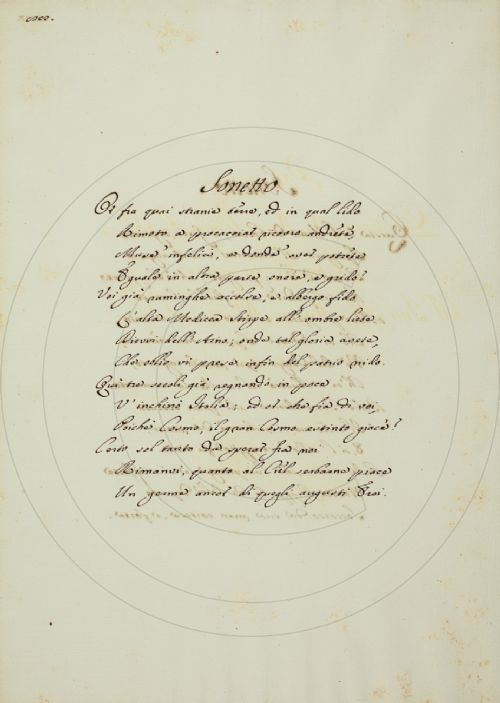 Sonetto.
Or fra quai stranie terre, ed in qual lido
Rimoto a procacciar ricovro andrete,
Muse infelici, e donde aver potrete
Eguale in altra parte onore, e grido?
Voi già raminghe accolse, e albergo fido
L'alta Medicea Stirpe all'ombre liete
Dievvi dell'Arno; onde tal gloria avete,
Che oblio vi prese infin del patrio nido.
Qui tre secoli già regnando in pace
V'inchinò Italia; ed or che fia di voi,
Poichè Cosmo, il gran Cosmo estinto giace?
Certo sol tanto da sperar fra noi
Rimanvi, quanto al Ciel serbarne piace
Un germe ancor di quegli augusti Eroi.